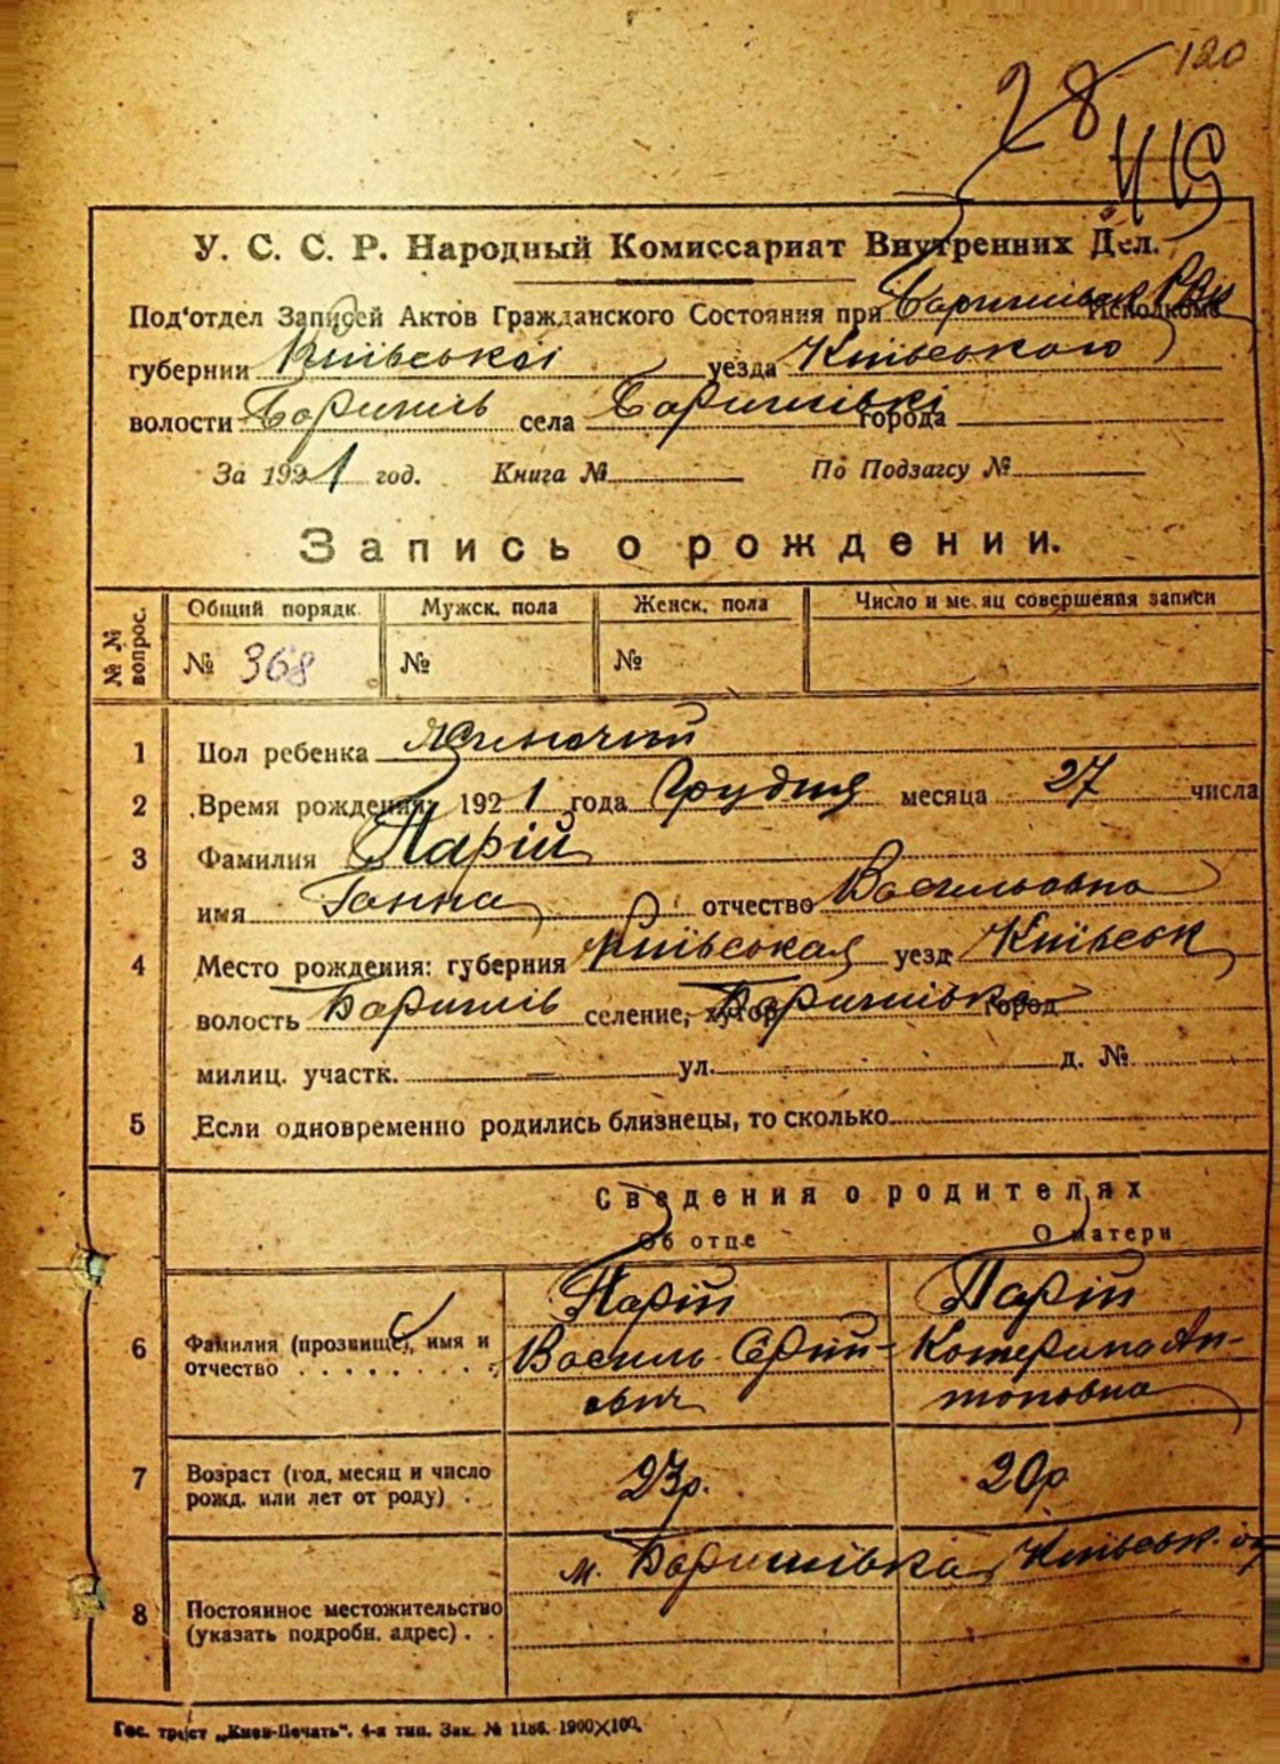 120
28
У. С. С. Р. Народный Комиссариат Внутренних Дел.
Под'отдел Записей Актов Гражданского Состояния при Баришівськ РВК Исполкоме
губернии Київської уезда Київського
волости Баришів села Баришівкі города
За 1921 год. Книга № По Подзагсу №
Запись о рождении.
№№ вопрос. Общий порядк. Мужск. пола Женск. пола Число и месяц совершения записи
№ 368 № №
1 Пол ребенка Жиночий
2 Время рождения: 1921 года Грудня месяца 27 числа
3 Фамилия Парій
имя Ганна отчество Васильовна
4 Место рождения: губерния Київськая уезд Київськ
волость Баришів селение, хутор Баришівка город
милиц. участк. ул. д. №
5 Если одновременно родились близнецы, то сколько
Сведения о родителях
Об отце О матери
Парій Парій
6 Фамилия (прозвище), имя и отчество Василь Катерина Ан-
ович тоновна
7 Возраст (год, месяц и число рожд. или лет от роду) 23р. 20р
м. Баришівка, Київськ.
8 Постоянное местожительство (указать подробн. адрес)
Гос. трест „Киев-Печать“. 4-я тип. Зак. № 1186. 1900×100.